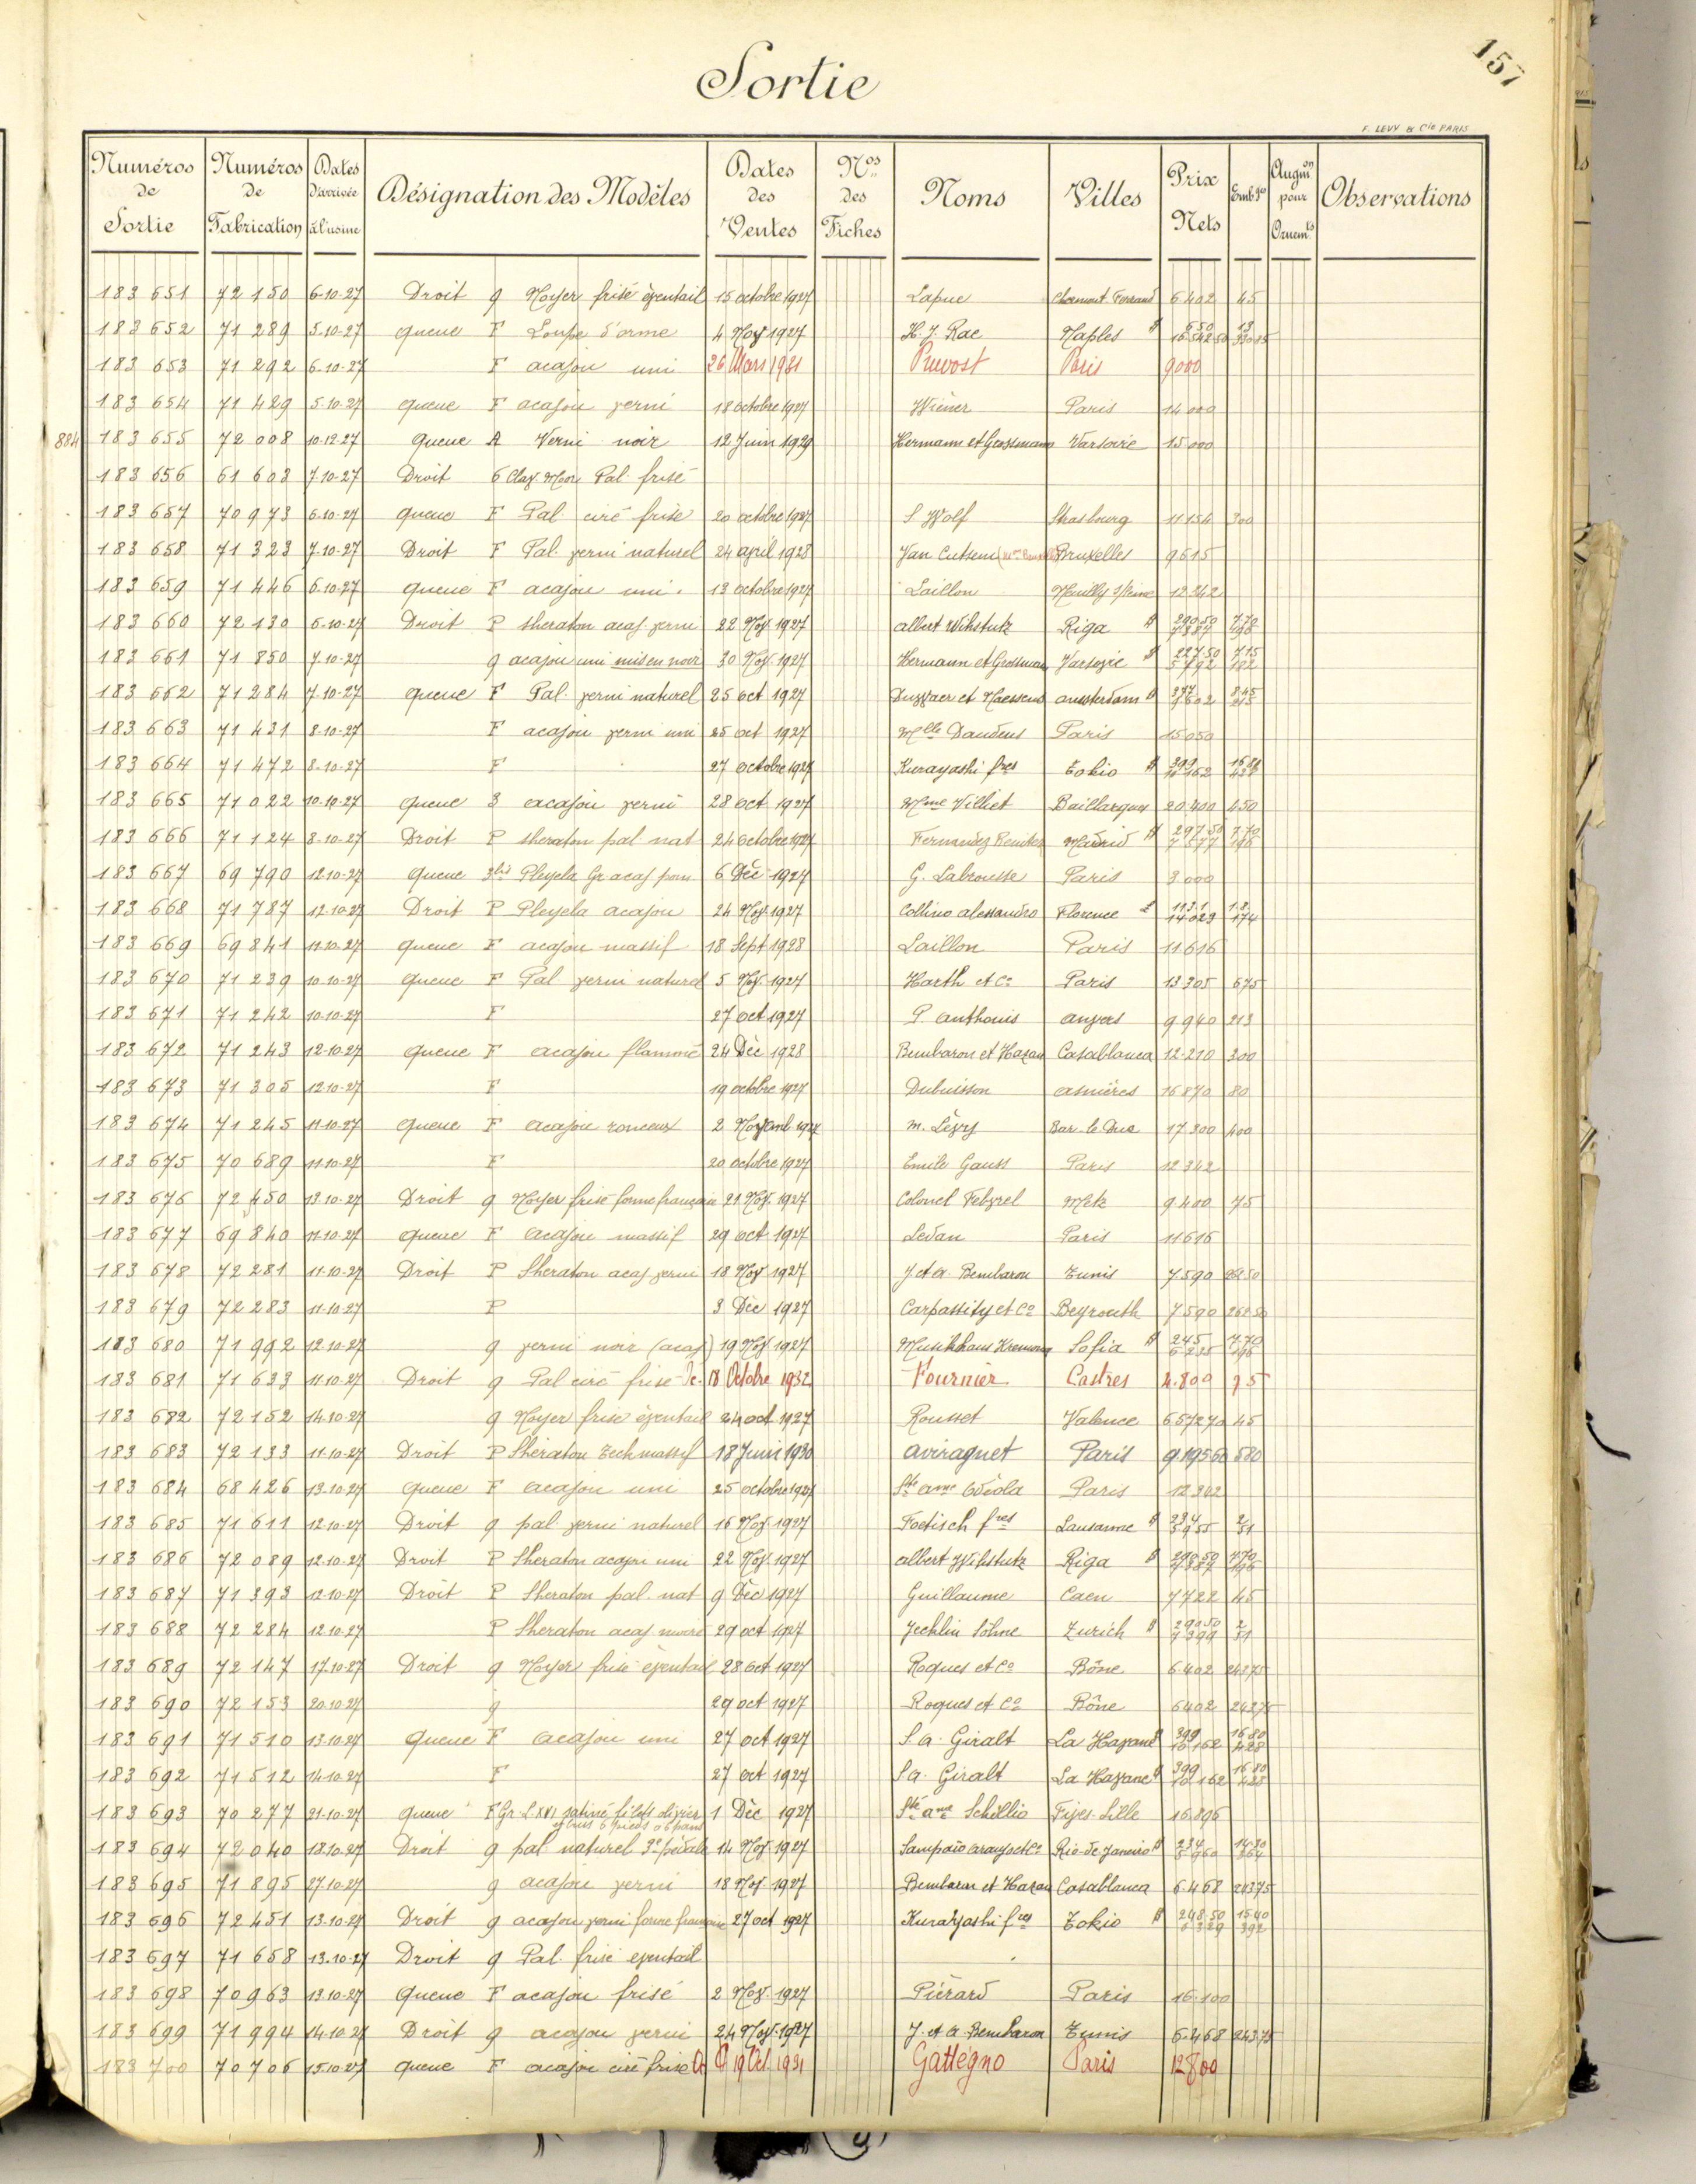 157
Sortie
F. LEVY & Cie PARIS
Numéros de Sortie | Numéros de Fabrication | Dates d'arrivée à l'usine | Désignation des Modèles | Dates des Ventes | Nos des Fiches | Noms | Villes | Prix Nets | Embge | Augmon pour Ornemts | Observations
183 651 | 72 150 | 6-10-27 | Droit 9 Noyer frisé éventail | 15 octobre 1927 | Lapue | Clermont Ferrand | 6402 | 45
183 652 | 71 289 | 5-10-27 | queue F Loupe d'orme | 4 Nov 1927 | H. J. Rae | Naples | $ 650 16.542 50 | 13
183 653 | 71 292 | 6-10-27 | F acajou uni | 26 Mars 1931 | Pruvost | Paris | 9000
183 654 | 71 429 | 5-10-27 | queue F acajou verni | 18 octobre 1927 | Wiener | Paris | 14 000
884 | 183 655 | 72 008 | 10-12-27 | queue A Verni noir | 12 Juin 1929 | Hermann et Grossmann | Varsovie | 15 000
183 656 | 61 603 | 7-10-27 | Droit 6 Clav. Pal. frisé
183 657 | 70 973 | 6-10-27 | queue F Pal ciré frisé | 20 octobre 1927 | S Wolf | Strasbourg | 11154 | 300
183 658 | 71 323 | 7-10-27 | Droit F Pal. verni naturel | 24 avril 1928 | Van Cutsem | Bruxelles | 9615
183 659 | 71 446 | 6-10-27 | queue F acajou uni | 13 octobre 1927 | Laillon | Neuilly s/Seine | 12342
183 660 | 72 130 | 6-10-27 | Droit P sheraton acaj. verni | 22 Nov 1927 | albert Wihstutz | Riga | $ 290 50 7387 | 7.70 196
183 661 | 71 850 | 7-10-27 | 9 acajou uni mis en noir | 30 Nov. 1927 | Hermann et Grossman | Varsovie | $ 227.50 5792 | 7.15 182
183 662 | 71 284 | 7-10-27 | queue F Pal. verni naturel | 25 oct 1927 | Duwaer et Naessens | amsterdam | $ 377 9602 | 8.45 215
183 663 | 71 431 | 8-10-27 | F acajou verni uni | 25 oct 1927 | Melle Daudens | Paris | 15050
183 664 | 71 472 | 8-10-27 | F | 27 octobre 1927 | Kurayashi fres | Tokio | $ 399 10162 | 16 80 428
183 665 | 71 022 | 10-10-27 | queue 3 acajou verni | 28 oct 1927 | Mme Villiet | Baillargues | 20.400 | 450
183 666 | 71 124 | 8-10-27 | Droit P sheraton pal nat | 24 octobre 1927 | Fernandez | Madrid | $ 297.50 7577 | 7.70 196
183 667 | 69 790 | 12-10-27 | queue 3bis Pleyela Gr acaj | 6 Déc 1927 | G. Labrousse | Paris | 3 000
183 668 | 71 787 | 12-10-27 | Droit P Pleyela acajou | 24 Nov. 1927 | Collino alessandro | Florence | £ 113.1 14023 | 1.8. 174
183 669 | 69 841 | 11-10-27 | queue F acajou massif | 18 Sept 1928 | Laillon | Paris | 11.616
183 670 | 71 239 | 10-10-27 | queue F Pal verni naturel | 5 Nov. 1927 | Harth et Co | Paris | 13 305 | 675
183 671 | 71 242 | 10-10-27 | F | 27 oct 1927 | P. anthonis | anvers | 9940 | 213
183 672 | 71 243 | 12-10-27 | queue F acajou flammé | 24 Déc 1928 | Bembaron et Hazan | Casablanca | 12.210 | 300
183 673 | 71 305 | 12-10-27 | F | 19 octobre 1927 | Dubuisson | asnières | 16870 | 80
183 674 | 71 245 | 11-10-27 | queue F acajou ronceux | 2 1927 | M. Lévy | Bar-le-Duc | 17300 | 400
183 675 | 70 689 | 11-10-27 | F | 20 octobre 1927 | Emile Gauss | Paris | 12342
183 676 | 72 450 | 13-10-27 | Droit 9 Noyer frisé forme française | 21 Nov. 1927 | Colonel Febvrel | Metz | 9400 | 75
183 677 | 69 840 | 11-10-27 | queue F acajou massif | 29 oct 1927 | Ledan | Paris | 11616
183 678 | 72 281 | 11-10-27 | Droit P Sheraton acaj verni | 18 Nov 1927 | J et A. Bembaron | Tunis | 7.590 | 262.50
183 679 | 72 283 | 11-10-27 | P | 3 Déc 1927 | Carpassity et Co | Beyrouth | 7590 | 262.50
183 680 | 71 992 | 12-10-27 | 9 verni noir (acaj) | 19 Nov. 1927 | Musikhaus | Sofia | $ 245 6235 | 7.70 196
183 681 | 71 633 | 11-10-27 | Droit 9 Pal ciré frisé | 18 Octobre 1932 | Fournier | Castres | 4.800 | 75
183 682 | 72 152 | 14-10-27 | 9 Noyer frisé éventail | 24 oct 1927 | Rousset | Valence | 6.572 70 | 45
183 683 | 72 133 | 11-10-27 | Droit P Shératon Teck massif | 18 Juin 1930 | aviragnet | Paris | 9.195 60 | 580
183 684 | 68 426 | 13-10-27 | queue F acajou uni | 25 octobre 1927 | Sté ame Odéola | Paris | 12342
183 685 | 71 611 | 12-10-27 | Droit 9 pal verni naturel | 16 Nov. 1927 | Foetisch fres | Lausanne | $ 234 5955 | 2 51
183 686 | 72 089 | 12-10-27 | Droit P Sheraton acajou uni | 22 Nov. 1927 | albert Wihstutz | Riga | $ 290 50 7387 | 7.70 196
183 687 | 71 393 | 12-10-27 | Droit P Sheraton pal. nat | 9 Déc 1927 | Guillaume | Caen | 7722 | 45
183 688 | 72 284 | 12-10-27 | P Sheraton acaj moiré | 29 oct 1927 | Jecklin Söhne | Zurich | $ 290 50 7399 | 2 51
183 689 | 72 147 | 17-10-27 | Droit 9 Noyer frisé éventail | 28 oct 1927 | Roques et Co | Bône | 6.402 | 243 75
183 690 | 72 153 | 20-10-27 | 9 | 29 oct 1927 | Roques et Co | Bône | 6402 | 243 75
183 691 | 71 510 | 13-10-27 | queue F acajou uni | 27 oct 1927 | S. a. Giralt | La Havane | $ 399 10162 | 16 80 428
183 692 | 71 512 | 14-10-27 | F | 27 oct 1927 | S a. Giralt | La Havane | $ 399 10 162 | 16 80 428
183 693 | 70 277 | 21-10-27 | queue F Gr. L. XVI satiné filets | 1 Déc 1927 | Sté ame Schillio | Fives-Lille | 16.896
183 694 | 72 040 | 18-10-27 | Droit 9 pal naturel 3e pédale | 14 Nov. 1927 | Sampaio Araujo et Co | Rio-de-Janeiro | $ 234 5960 | 14.30 364
183 695 | 71 895 | 27-10-27 | 9 acajou verni | 18 Nov. 1927 | Bembaron et Hazan | Casablanca | 6.468 | 243 75
183 696 | 72 451 | 13-10-27 | Droit 9 acajou verni forme française | 27 oct 1927 | Kurayashi fres | Tokio | $ 248.50 6329 | 15 40 392
183 697 | 71 658 | 13-10-27 | Droit 9 Pal. frisé éventail
183 698 | 70 963 | 13-10-27 | queue F acajou frisé | 2 Nov. 1927 | Piérard | Paris | 16.100
183 699 | 71 994 | 14-10-27 | Droit 9 acajou verni | 24 Nov. 1927 | J. et A. Bembaron | Tunis | 6.468 | 243 75
183 700 | 70 706 | 15-10-27 | queue F acajou ciré frisé | 19 Oct. 1931 | Gattégno | Paris | 12800